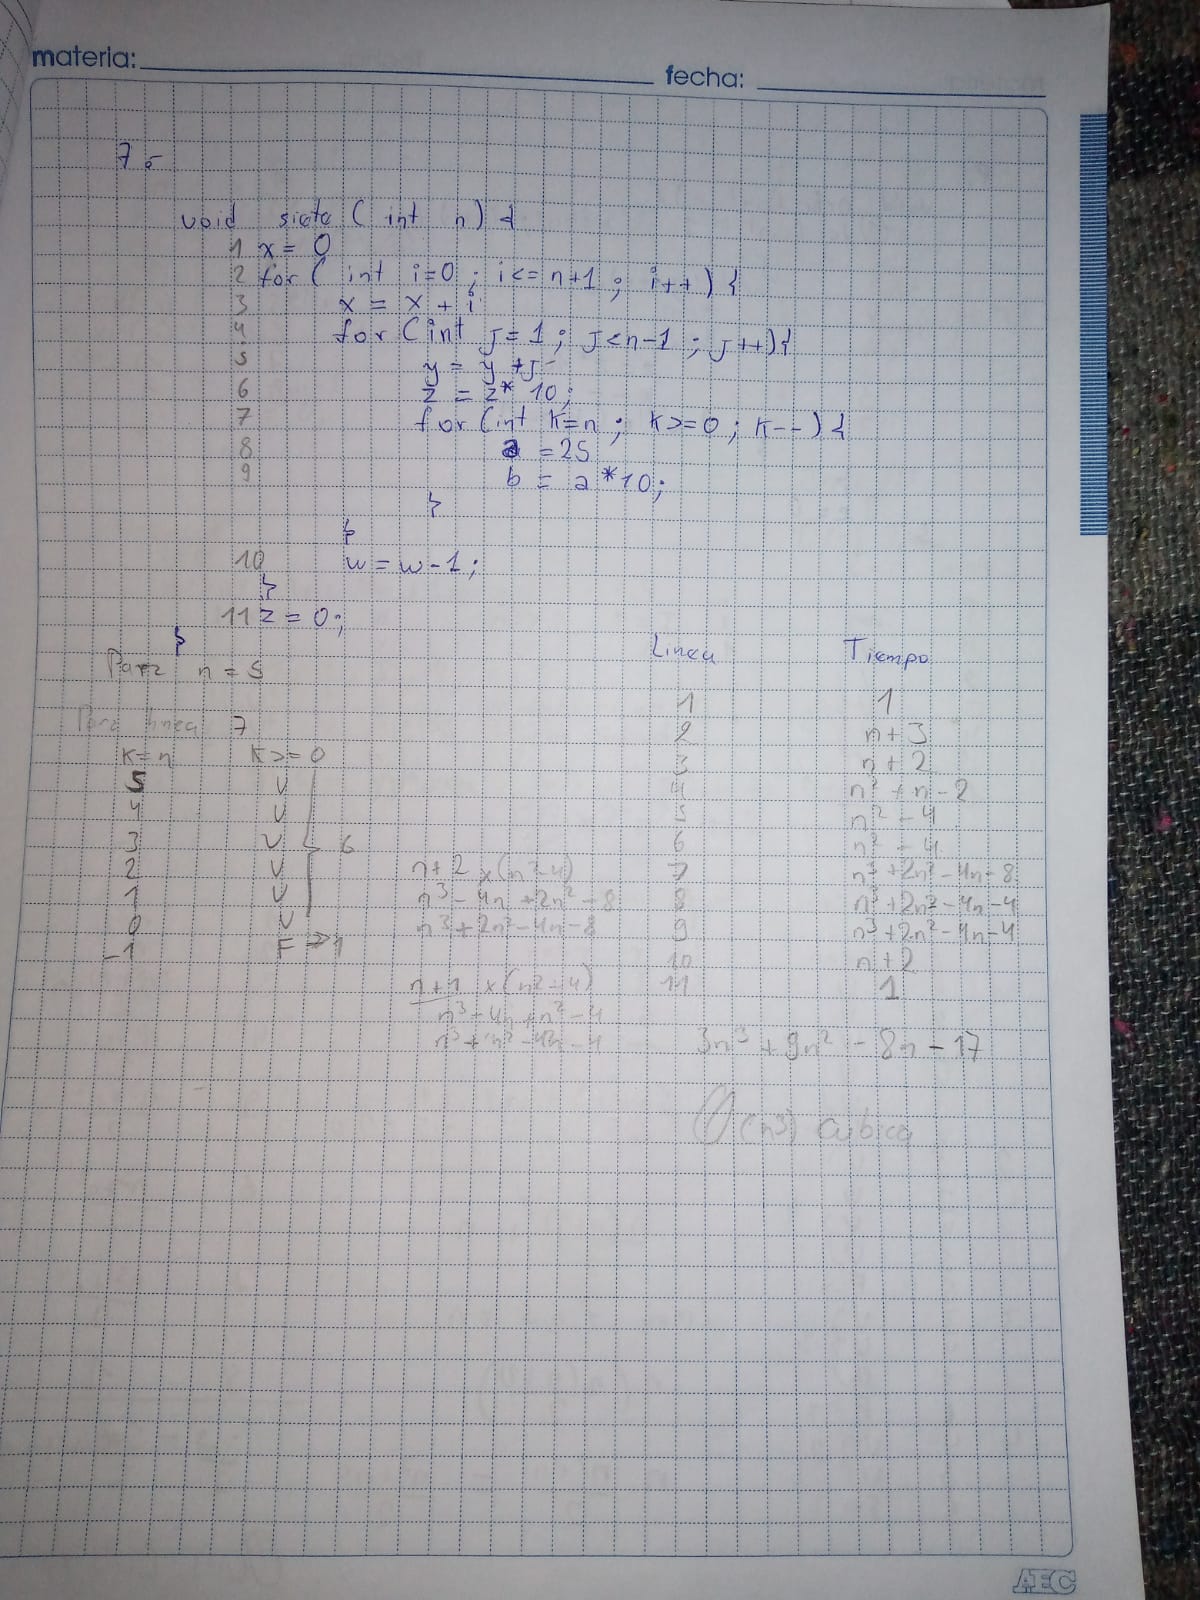 materia:
fecha:
7.-
void siete ( int n) {
1 x = 0
2 for ( int i=0 ; i<= n+1 ; i++ ) {
3 x = x + i
4 for (int j=1 ; j<n-1 ; j++){
5 y = y +j
6 z = z* 10;
7 for (int k=n ; k>=0 ; k--) {
8 a =25
9 b = a *10;
}
}
10 w = w-1;
}
11 z = 0;
}
Para n = 5
Para linea 7
k=n k>=0
5 V
4 V
3 V 6
2 V
1 V
0 V
-1 F => 1
n+2 x(n²-4)
n³-4n+2n²-8
n³+2n²-4n-8
n+1 x(n²-4)
n³-4n+n²-4
n³+n²-4n-4
Linea Tiempo
1 1
2 n+3
3 n+2
4 n²+n-2
5 n²-4
6 n²-4
7 n³+2n²-4n-8
8 n³+2n²-4n-4
9 n³+2n²-4n-4
10 n+2
11 1
3n³+9n²-8n-17
O(n³) cubica
AEC